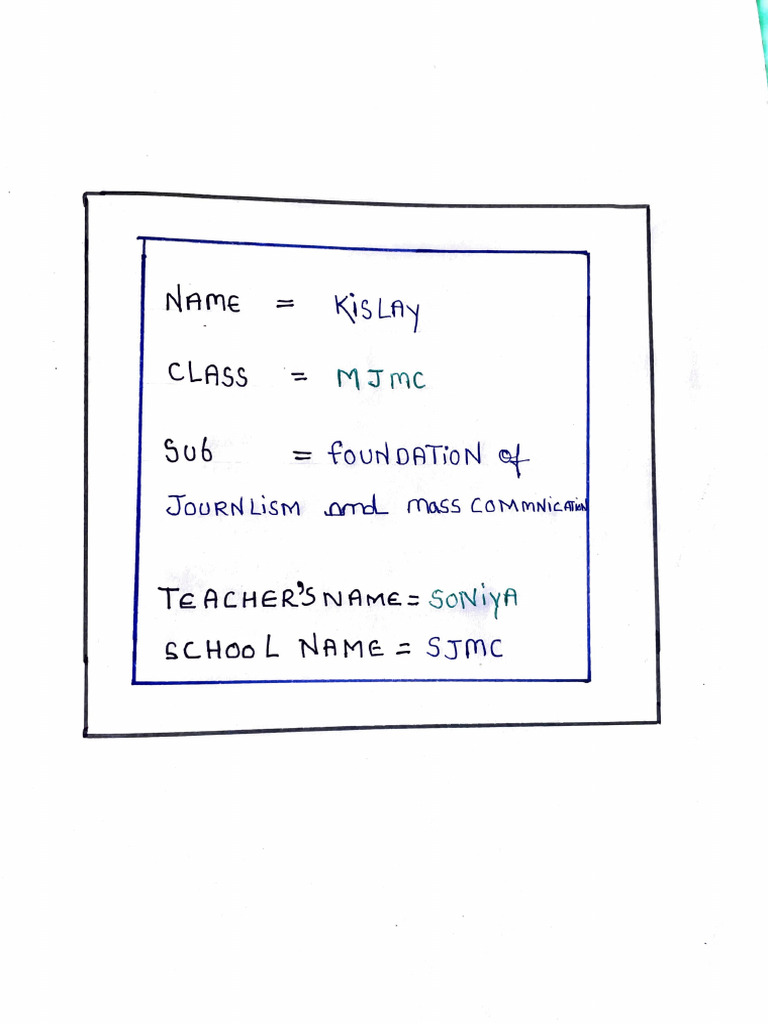 NAME = KiSLAY
CLASS = MJMC
SUB = fOUNDATiON of
JOURNLiSM and MASS COMMNICATiON
TEACHER'S NAME = SONiYA
SCHOOL NAME = SJMC